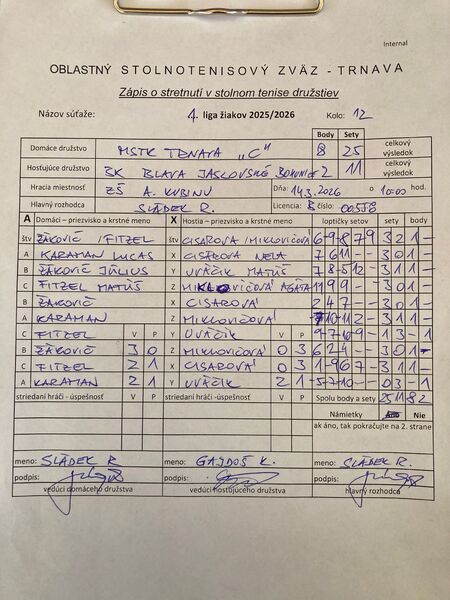 Internal
OBLASTNÝ STOLNOTENISOVÝ ZVÄZ - TRNAVA
Zápis o stretnutí v stolnom tenise družstiev
Názov súťaže: 4. liga žiakov 2025/2026 Kolo: 12
Body Sety
Domáce družstvo MSTK TRNAVA "C" 8 25 celkový výsledok
Hosťujúce družstvo ŠK BLAVA JASLOVSKÉ BOHUNICE 2 11 celkový výsledok
Hracia miestnosť ZŠ A. KUBINU Dňa: 14.3.2026 o 10:00 hod.
Hlavný rozhodca SLÁDEK R. Licencia: číslo: 00558
A Domáci – priezvisko a krstné meno X Hostia – priezvisko a krstné meno loptičky setov sety body
štv ŽÁKOVIČ / FITZEL štv CISÁROVÁ / MIKLOVIČOVÁ 6 -9 8 -7 9 3 2 1 -
A KARAMAN LUCAS X CISÁROVÁ NELA 7 6 11 - - 3 0 1 -
B ŽÁKOVIČ JÚLIUS Y UVÁČIK MATÚŠ 7 8 -5 12 - 3 1 1 -
C FITZEL MATÚŠ Z MIKLOVIČOVÁ AGÁTA 11 9 9 - - 3 0 1 -
B ŽÁKOVIČ X CISÁROVÁ 2 4 7 - - 3 0 1 -
A KARAMAN Z MIKLOVIČOVÁ 3 1 1 -
C FITZEL V P Y UVÁČIK V P -9 7 -10 -9 - 1 3 - 1
B ŽÁKOVIČ 3 0 Z MIKLOVIČOVÁ 0 3 6 2 4 - - 3 0 1 -
C FITZEL 2 1 X CISÁROVÁ 0 3 3 1 -9 6 7 - 3 1 1 -
A KARAMAN 2 1 Y UVÁČIK 2 1 -5 -7 -10 - - 0 3 - 1
striedaní hráči - úspešnosť V P striedaní hráči - úspešnosť V P Spolu body a sety 25 11 8 2
Námietky Áno Nie
ak áno, tak pokračujte na 2. strane
meno: SLÁDEK R. meno: GAJDOŠ K. meno: SLÁDEK R.
podpis: podpis: podpis:
vedúci domáceho družstva vedúci hosťujúceho družstva hlavný rozhodca